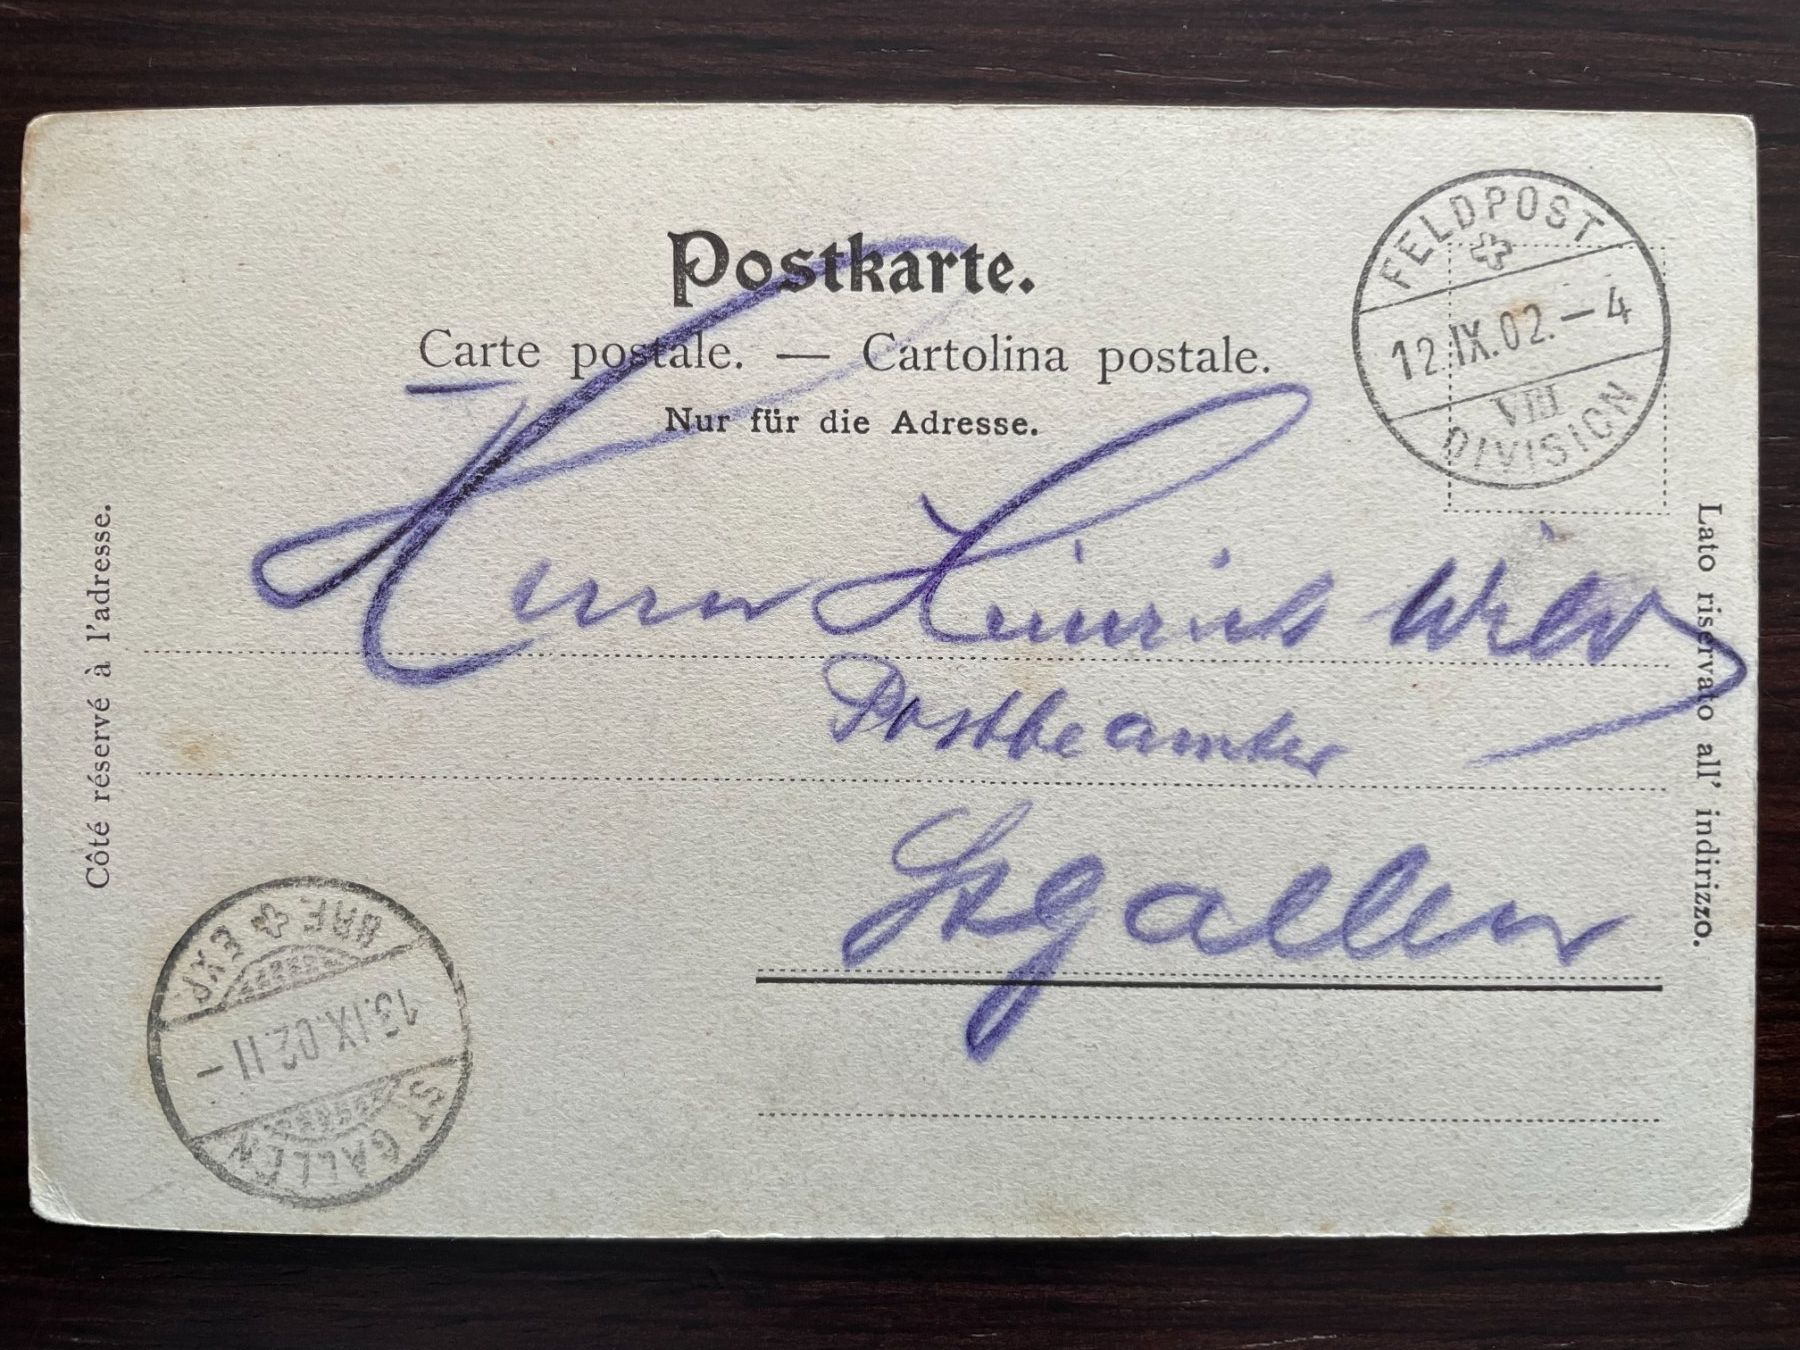 Postkarte.
Carte postale. — Cartolina postale.
Nur für die Adresse.
FELDPOST
12.IX.02.–4
VIII
DIVISION
Côté réservé à l'adresse.
Lato riservato all' indirizzo.
Herrn Heinrich Wild
Postbeamter
Stgallen
BRF. EXP.
13.IX.02.11–
ST. GALLEN